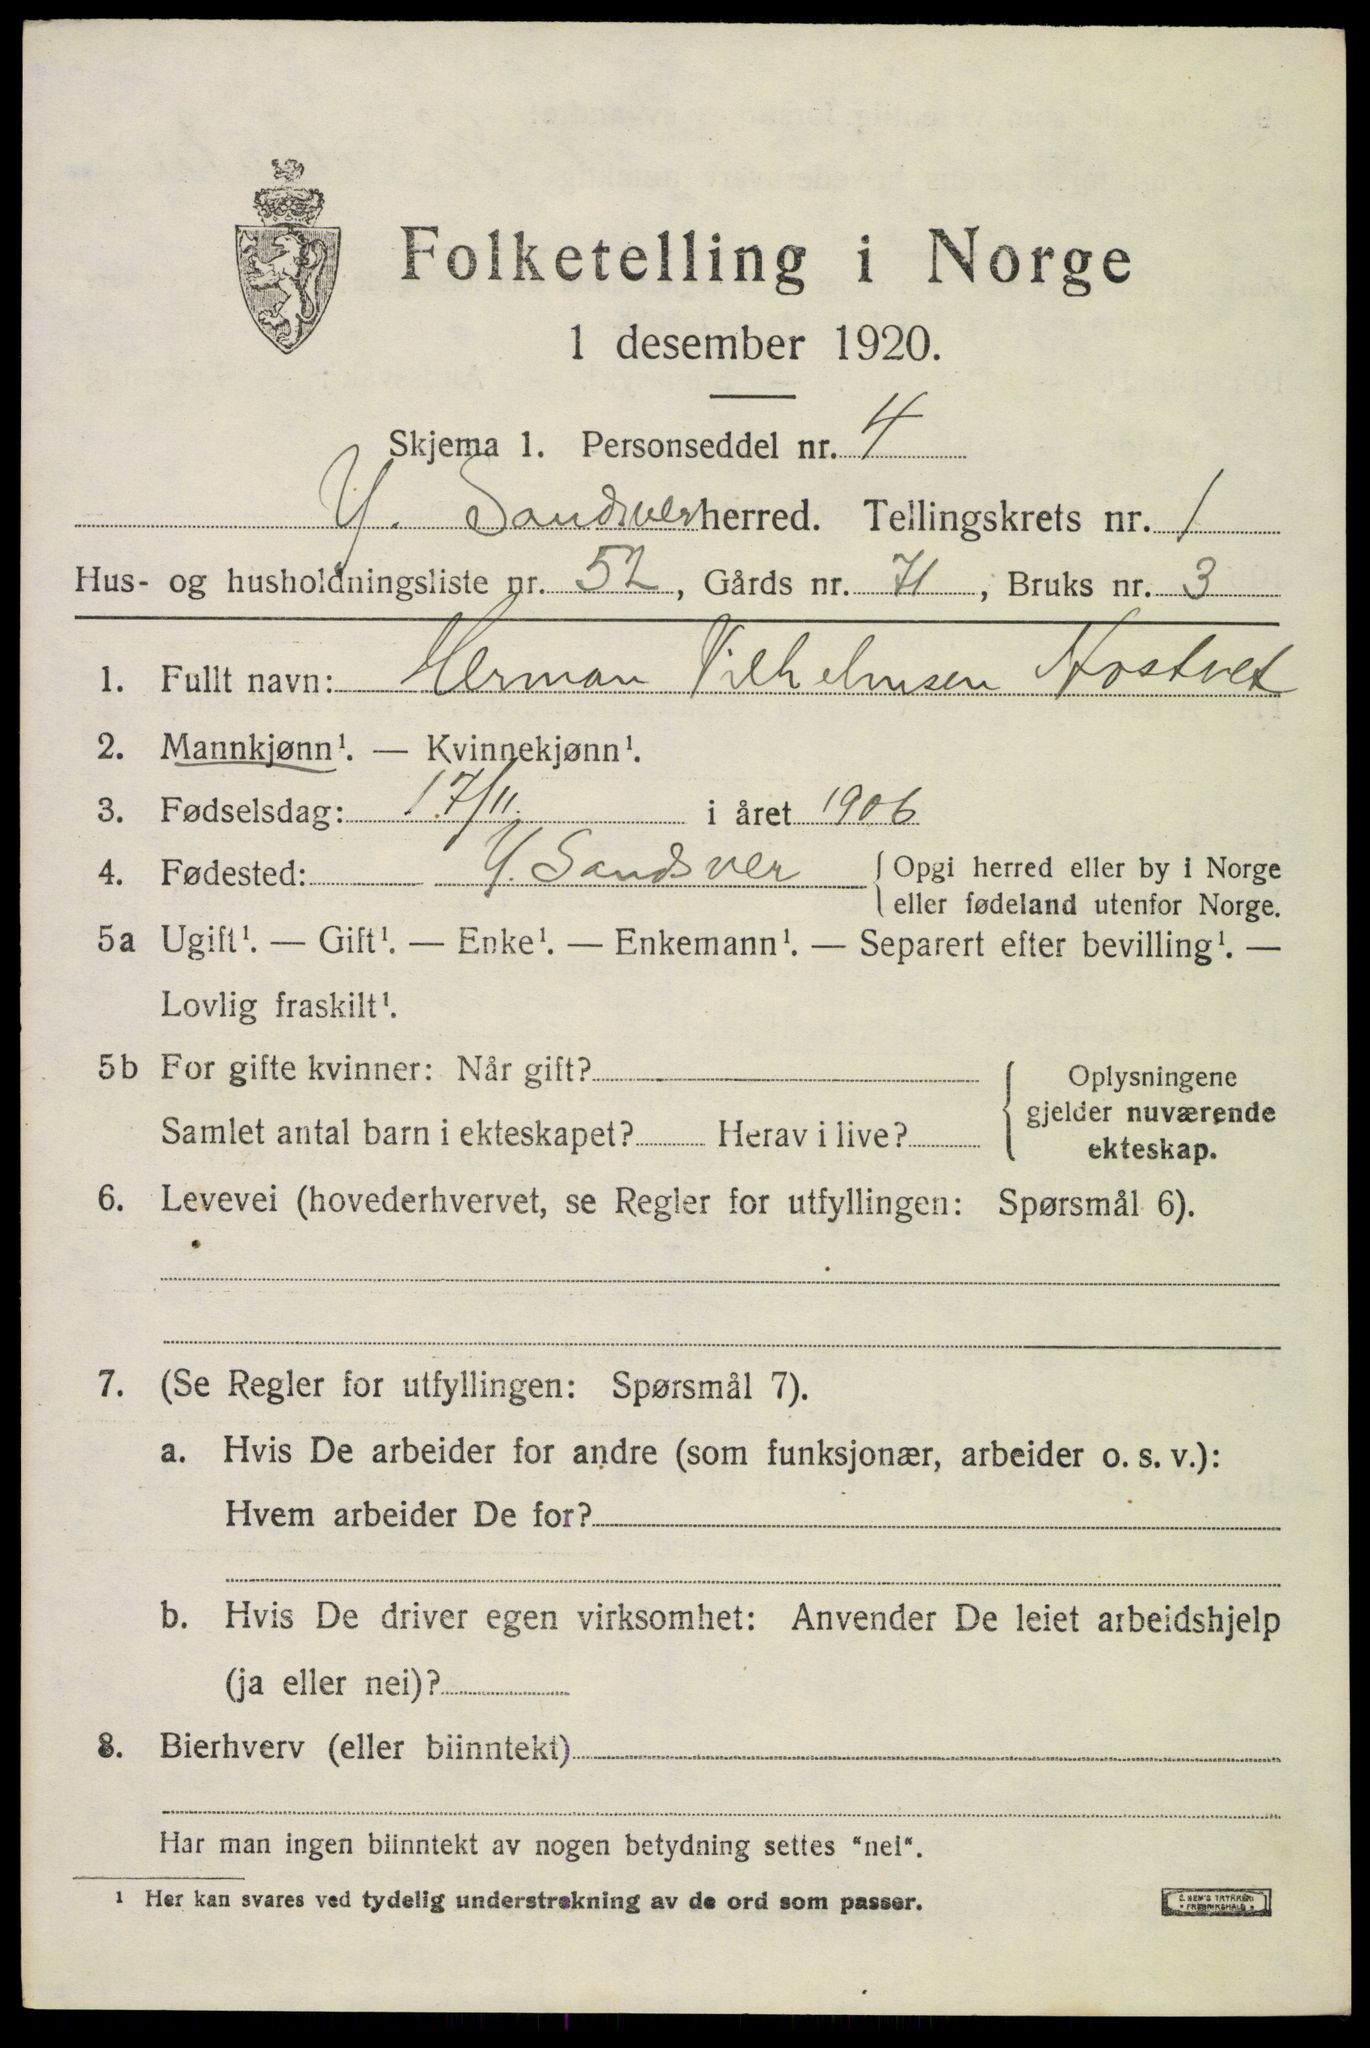 Folketelling i Norge
1 desember 1920.
Skjema 1. Personseddel nr. 4
Y. Sandsver herred. Tellingskrets nr. 1
Hus- og husholdningsliste nr. 52, Gårds nr. 71, Bruks nr. 3
1. Fullt navn: Herman Vilhelmsen Nostvet
2. Mannkjønn¹. — Kvinnekjønn¹.
3. Fødselsdag: 17/11 i året 1906
4. Fødested: Y. Sandsver { Opgi herred eller by i Norge
eller fødeland utenfor Norge.
5a Ugift¹. — Gift¹. — Enke¹. — Enkemann¹. — Separert efter bevilling¹. —
Lovlig fraskilt¹.
5b For gifte kvinner: Når gift? Oplysningene
gjelder nuværende
Samlet antal barn i ekteskapet? Herav i live?
ekteskap.
6. Levevei (hovederhvervet, se Regler for utfyllingen: Spørsmål 6).
7. (Se Regler for utfyllingen: Spørsmål 7).
a. Hvis De arbeider for andre (som funksjonær, arbeider o. s. v.):
Hvem arbeider De for?
b. Hvis De driver egen virksomhet: Anvender De leiet arbeidshjelp
(ja eller nei)?
8. Bierhverv (eller biinntekt)
Har man ingen biinntekt av nogen betydning settes "nei".
1 Her kan svares ved tydelig understrekning av de ord som passer.